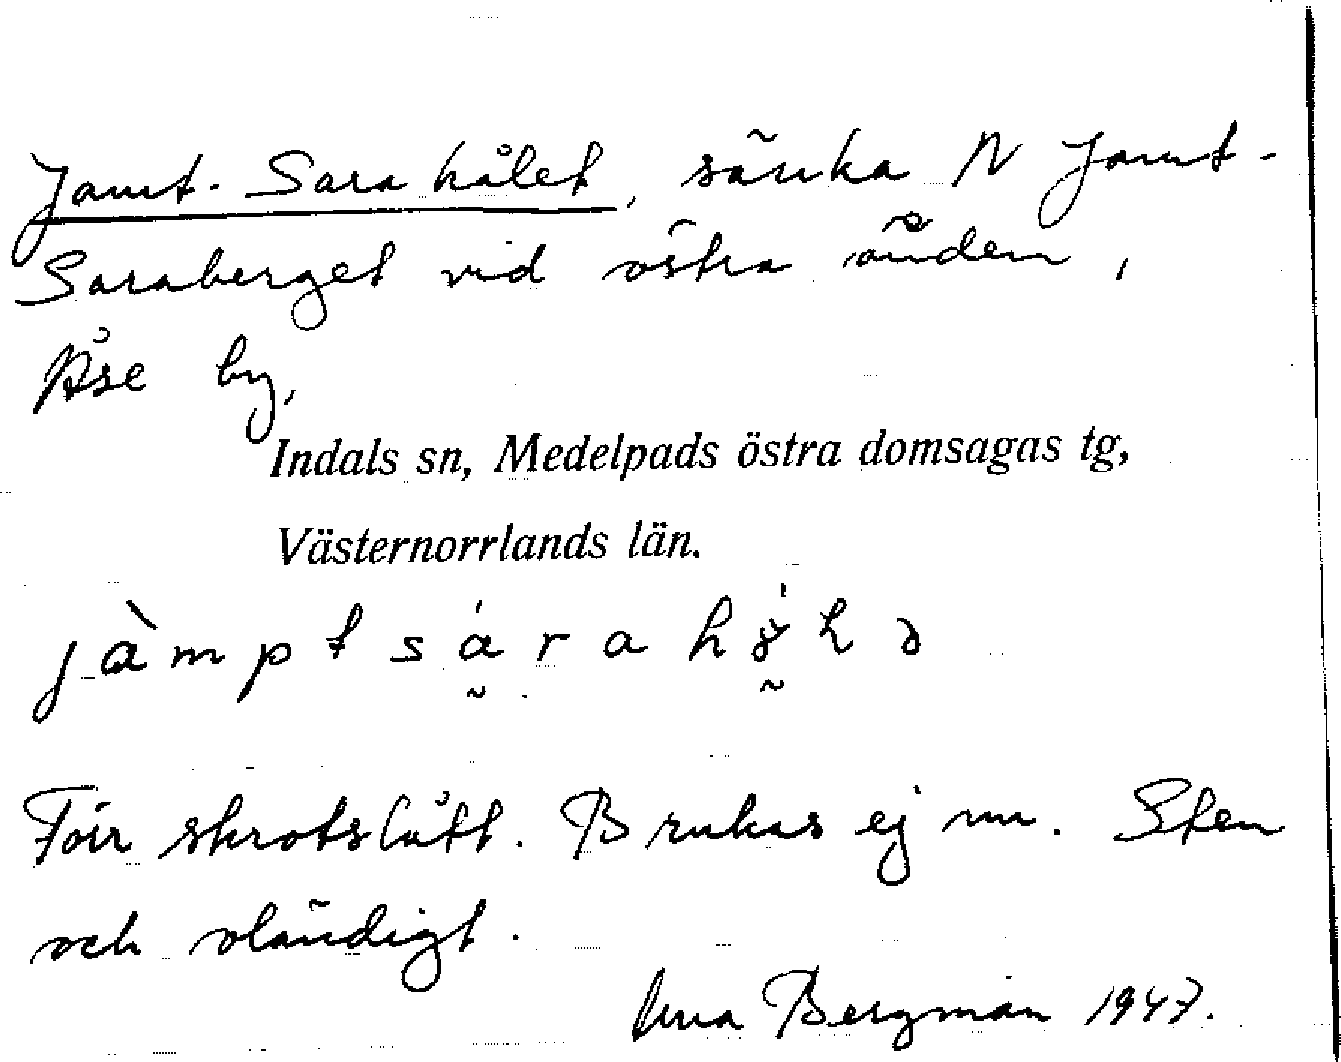 Jamt-Sara hålet, sänka N Jamt-
Saraberget vid östra änden,
Åse by,
Indals sn, Medelpads östra domsagas tg,
Västernorrlands län.
jàmptsárahǿhə
Förr skrotslått. Brukas ej nu. Sten
och oländigt.
Anna Bergman 1947.